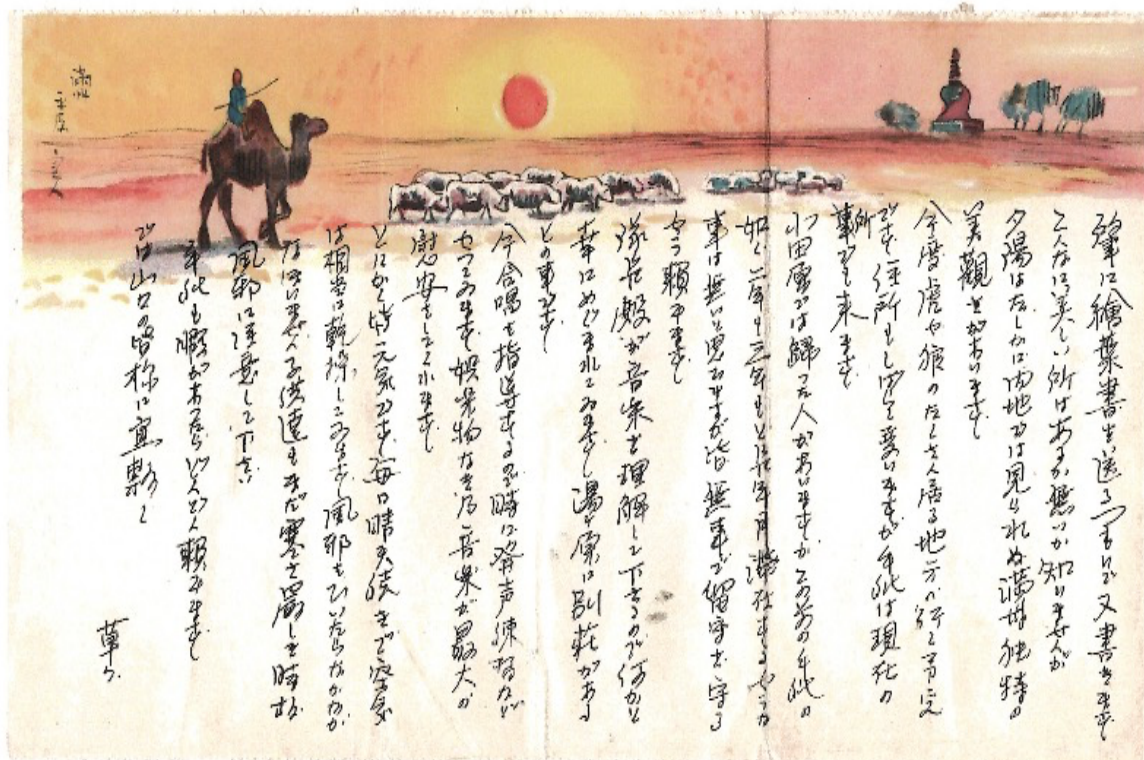 肇に繪葉書を送るつもりで又書きます
こんなに美しい所はあるか無いか知りませんが
夕陽はたしかに内地では見られぬ満洲独特の
美観をがあります
今度虎や狼のたくさん居る地方へ行く予定
です 住所もし変りますが手紙は現在の
所でも来ます
小田原では帰った人がありますがこの前の手紙の
如く二年も三年もと長年月滞在するやうな
事は無いと思ひますが皆無事で留守を守る
やう頼みます
隊長殿が音楽を理解して下さるので何かと
幸にめぐまれてゐます 湯ヶ原に別荘がある
との事です
今合唱を指導するので時に発声練習など
やつてゐます 娯楽物なき為音楽が最大の
慰安をしてくれます
とにかく皆元気です 毎日晴天続きで空気
は相当に乾燥してゐます 風邪をひいたらなかなか
子供達もまだ寒さ厳しき時故
風邪に注意して下さい
手紙も暇があつたらどんどん頼みます
では山口の皆様に宜敷く
草々
満洲